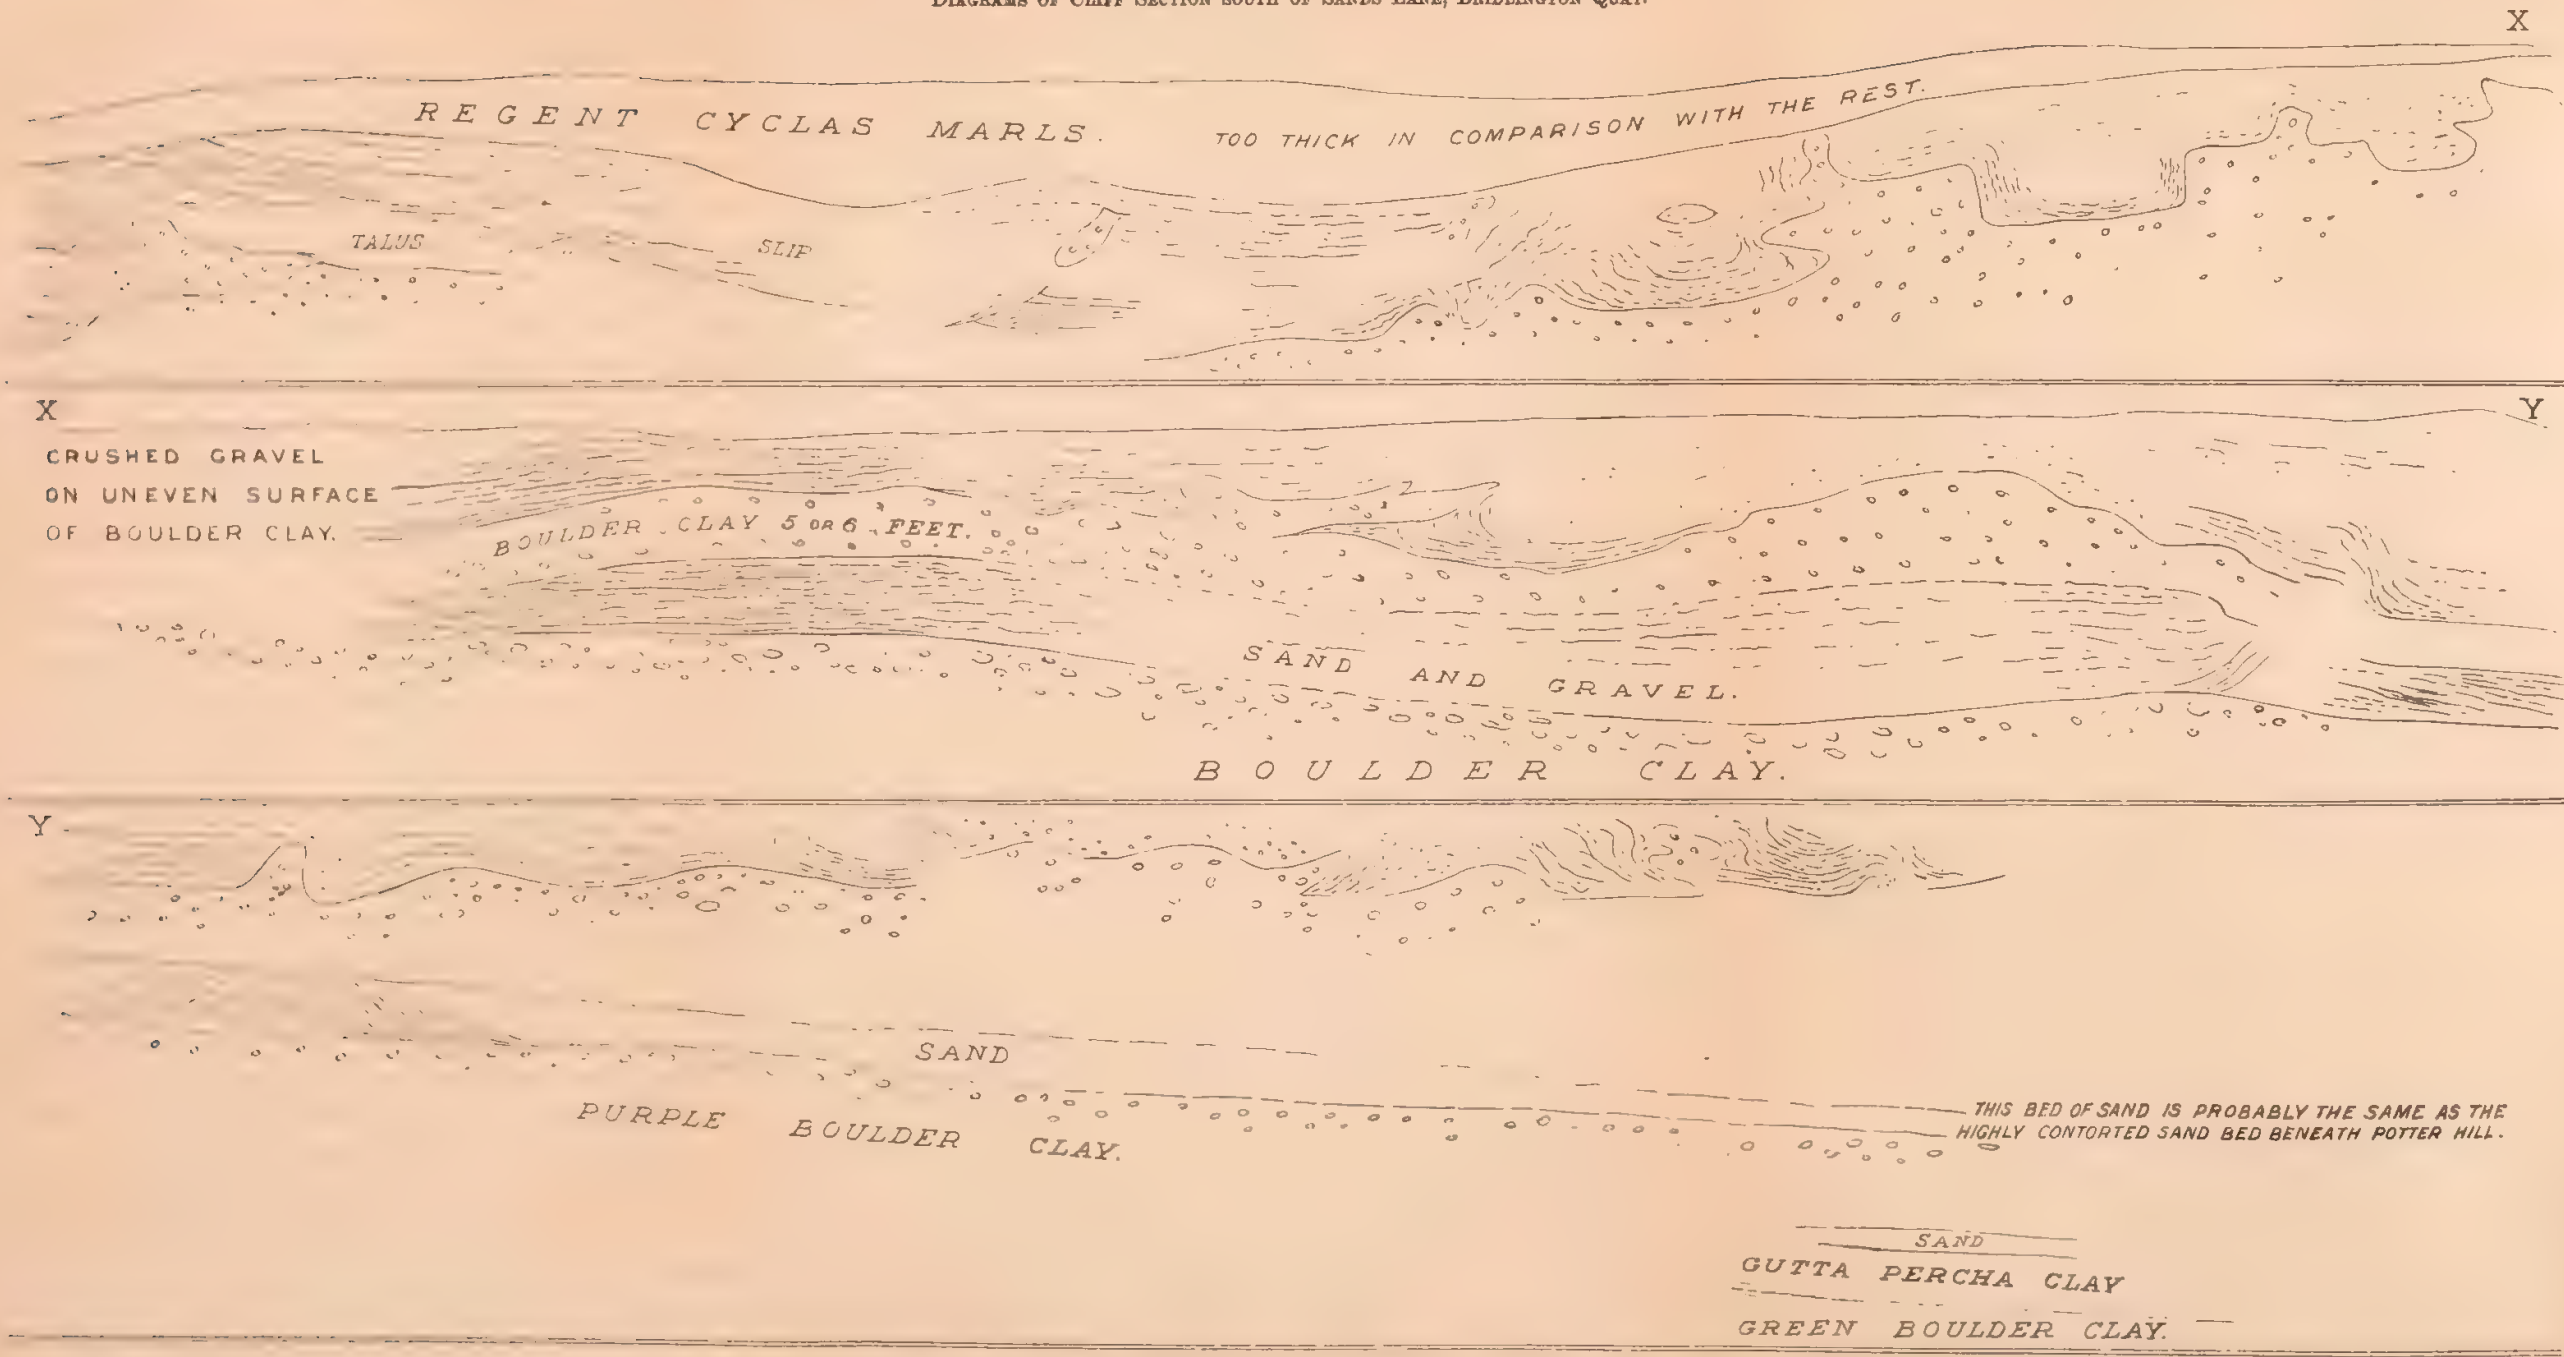 DIAGRAMS OF CLIFF SECTION SOUTH OF SANDS LANE, BRIDLINGTON QUAY.
X
REGENT CYCLAS MARLS. TOO THICK IN COMPARISON WITH THE REST.
TALUS
SLIP
X
Y
CRUSHED GRAVEL
ON UNEVEN SURFACE
OF BOULDER CLAY.
BOULDER CLAY 5 OR 6 FEET.
SAND AND GRAVEL.
BOULDER CLAY.
Y
SAND
PURPLE BOULDER CLAY.
THIS BED OF SAND IS PROBABLY THE SAME AS THE
HIGHLY CONTORTED SAND BED BENEATH POTTER HILL.
SAND
GUTTA PERCHA CLAY
GREEN BOULDER CLAY.